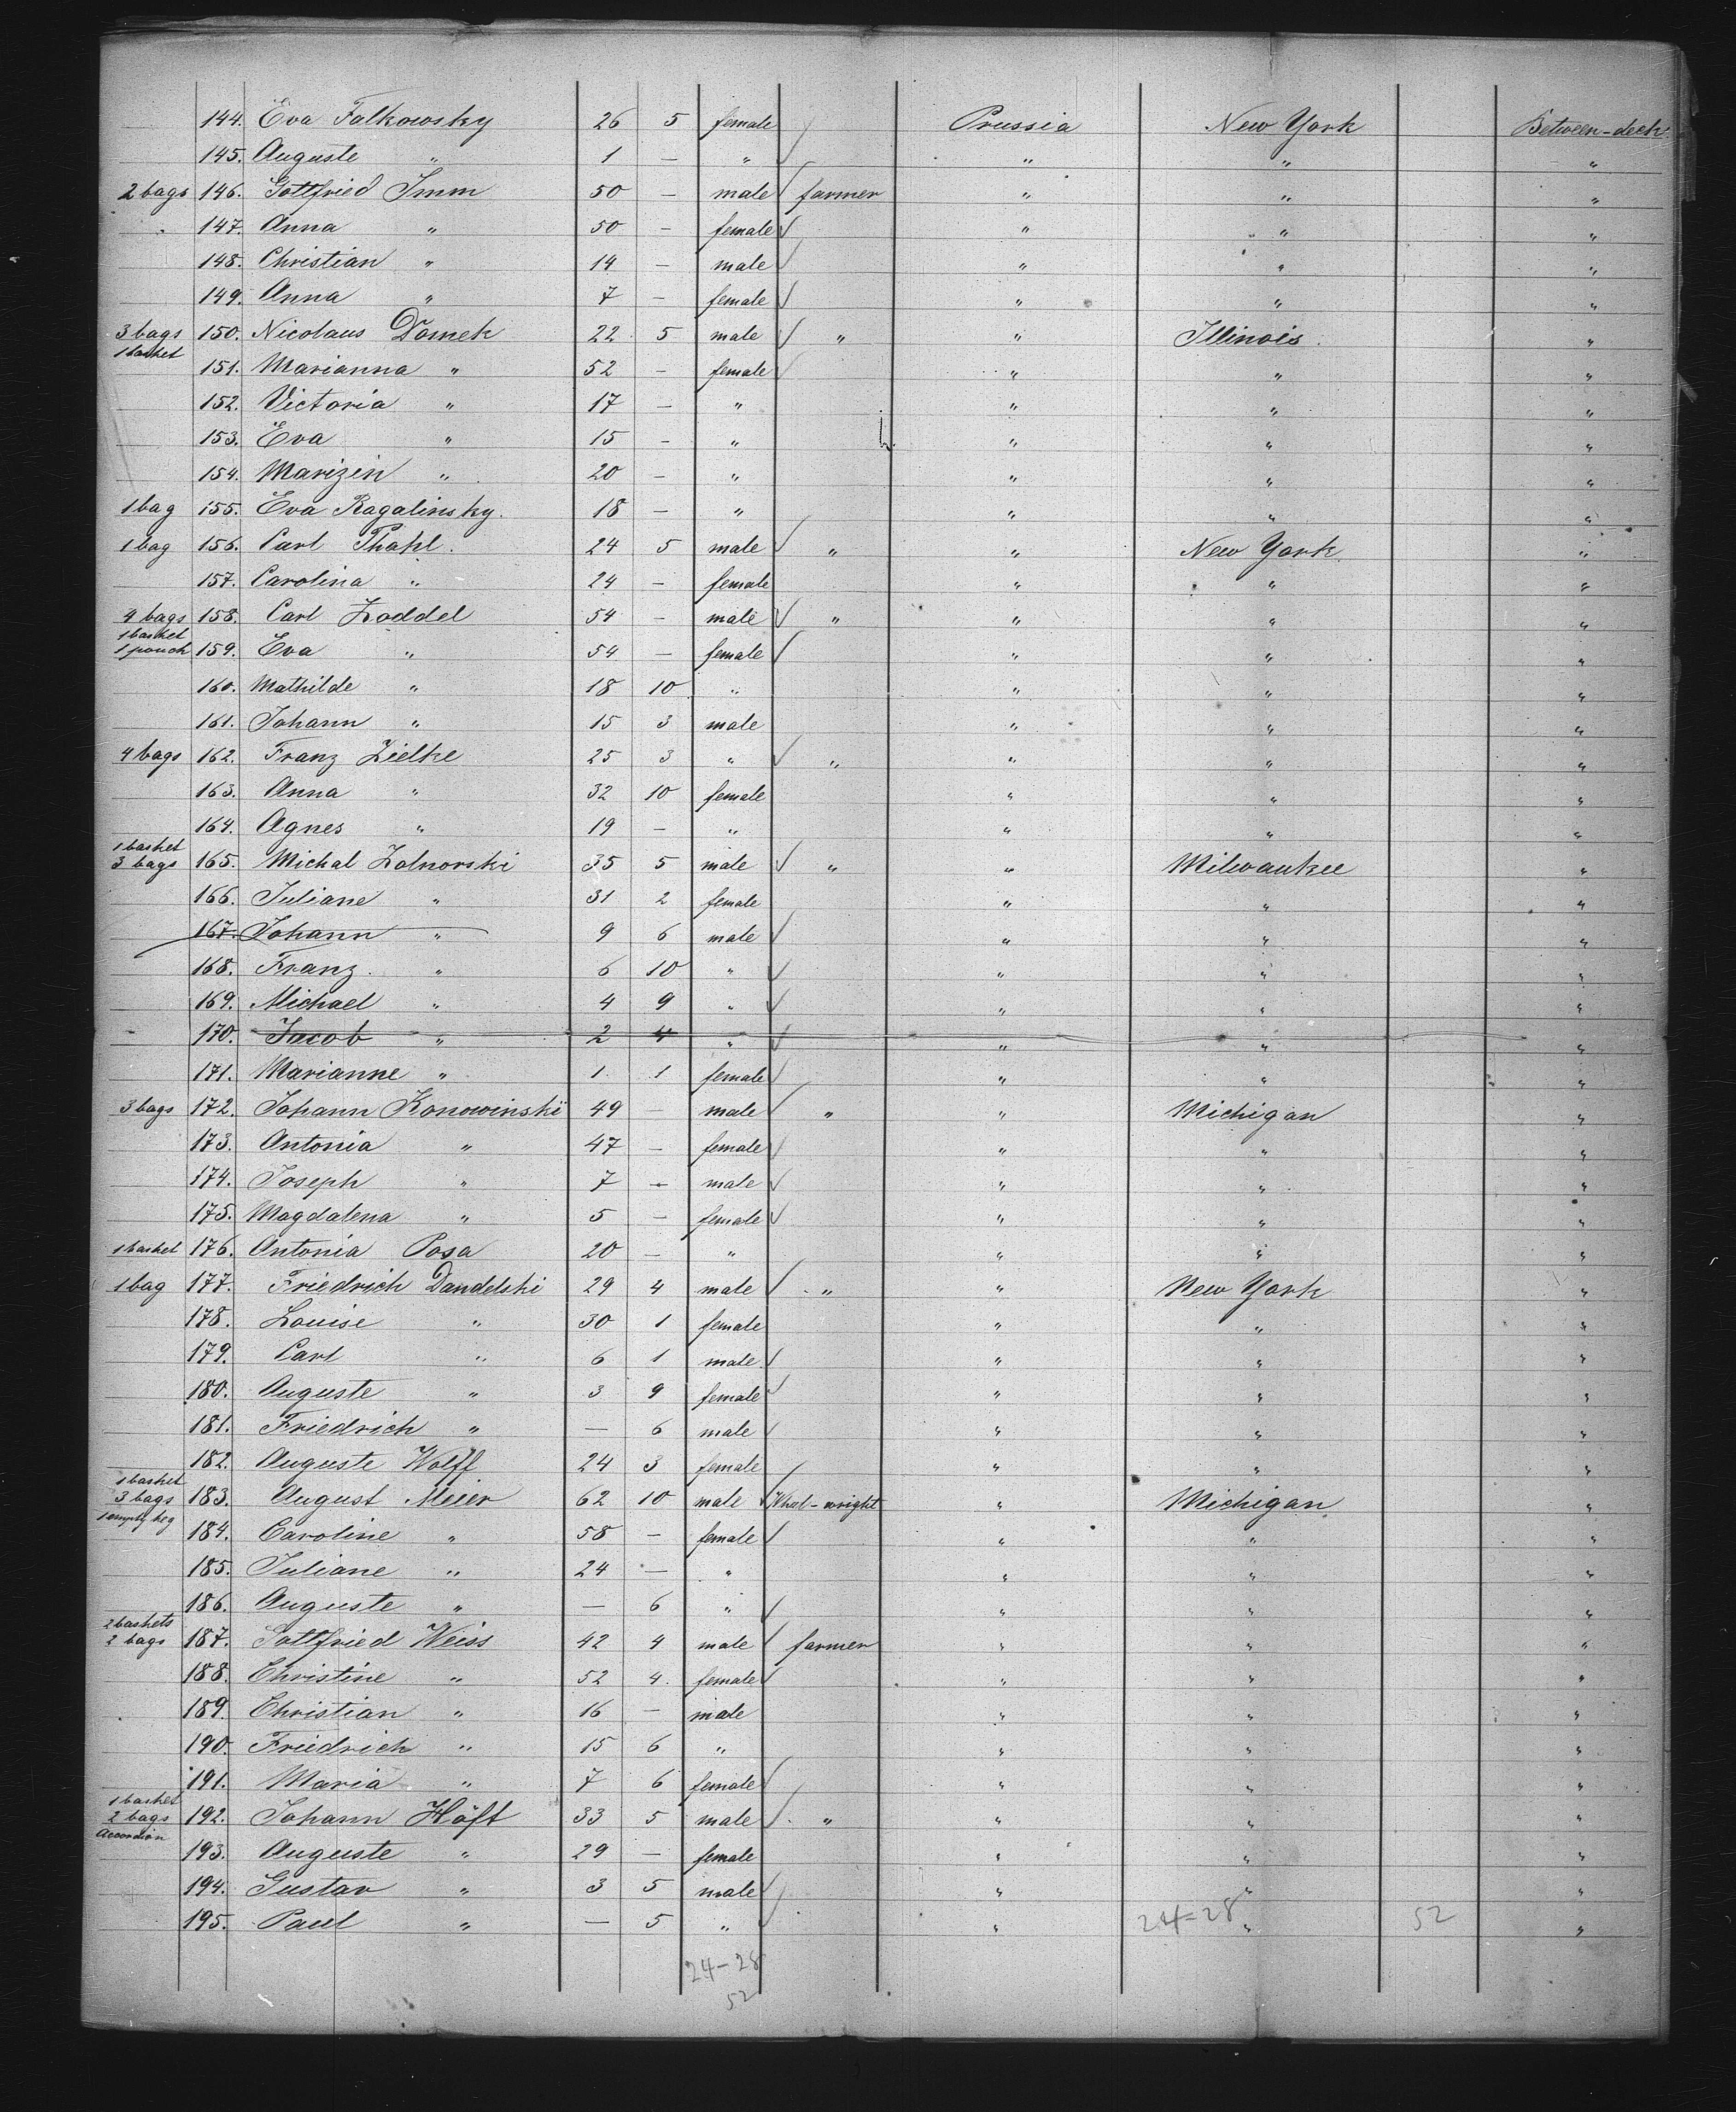 144. Eva Falkowsky 26 5 female Prussia New York Between-deck
145. Auguste " 1 — " " " "
2 bags 146. Gottfried Imm 50 — male farmer " " "
147. Anna " 50 — female " " "
148. Christian " 14 — male " " "
149. Anna " 7 — female " " "
3 bags 150. Nicolaus Domek 22 5 male " " Illinois "
1 basket
151. Marianna " 52 — female " " "
152. Victoria " 17 — " " " "
153. Eva " 15 — " " " "
154. Marizin " 20 — " " " "
1 bag 155. Eva Ragalinsky. 18 — " " " "
1 bag 156. Carl Thahl. 24 5 male " " New York "
157. Carolina " 24 — female " " "
4 bags 158. Carl Zoddel 54 — male " " " "
1 basket
1 pouch 159. Eva " 54 — female " " "
160. Mathilde " 18 10 " " " "
161. Johann " 15 3 male " " "
4 bags 162. Franz Zielke 25 3 " " " " "
163. Anna " 32 10 female " " "
164. Agnes " 19 — " " " "
1 basket
3 bags 165. Michal Zolnorski 35 5 male " " Milwaukee "
166. Juliane " 31 2 female " " "
167. Johann " 9 6 male " " "
168. Franz. " 6 10 " " " "
169. Michael " 4 9 " " " "
170. Jacob " 2 4 " " " "
171. Marianne " 1 1 female " " "
3 bags 172. Johann Konowinski 49 — male " " Michigan "
173. Antonia " 47 — female " " "
174. Joseph " 7 — male " " "
175. Magdalena " 5 — female " " "
1 basket 176. Antonia Posa 20 — " " " "
1 bag 177. Friedrich Dandelski 29 4 male " " New York "
178. Louise " 30 1 female " " "
179. Carl " 6 1 male " " "
180. Auguste " 3 9 female " " "
181. Friedrich " — 6 male " " "
182. Auguste Wolff 24 3 female " " "
1 basket
3 bags 183. August Meier 62 10 male Wheel-wright " Michigan "
1 empty keg
184. Caroline " 58 — female " " "
185. Juliane " 24 — " " " "
186. Auguste " — 6 " " " "
2 baskets
2 bags 187. Gottfried Weiss 42 4 male farmer " " "
188. Christine " 52 4. female " " "
189. Christian " 16 — male " " "
190. Friedrich " 15 6 " " " "
191. Maria " 7 6 female " " "
1 basket
2 bags 192. Johann Höft 33 5 male " " " "
Accordion
193. Auguste " 29 — female " " "
194. Gustav " 3 5 male " " "
195. Paul " — 5 " " " "
24=28 52
24-28
52